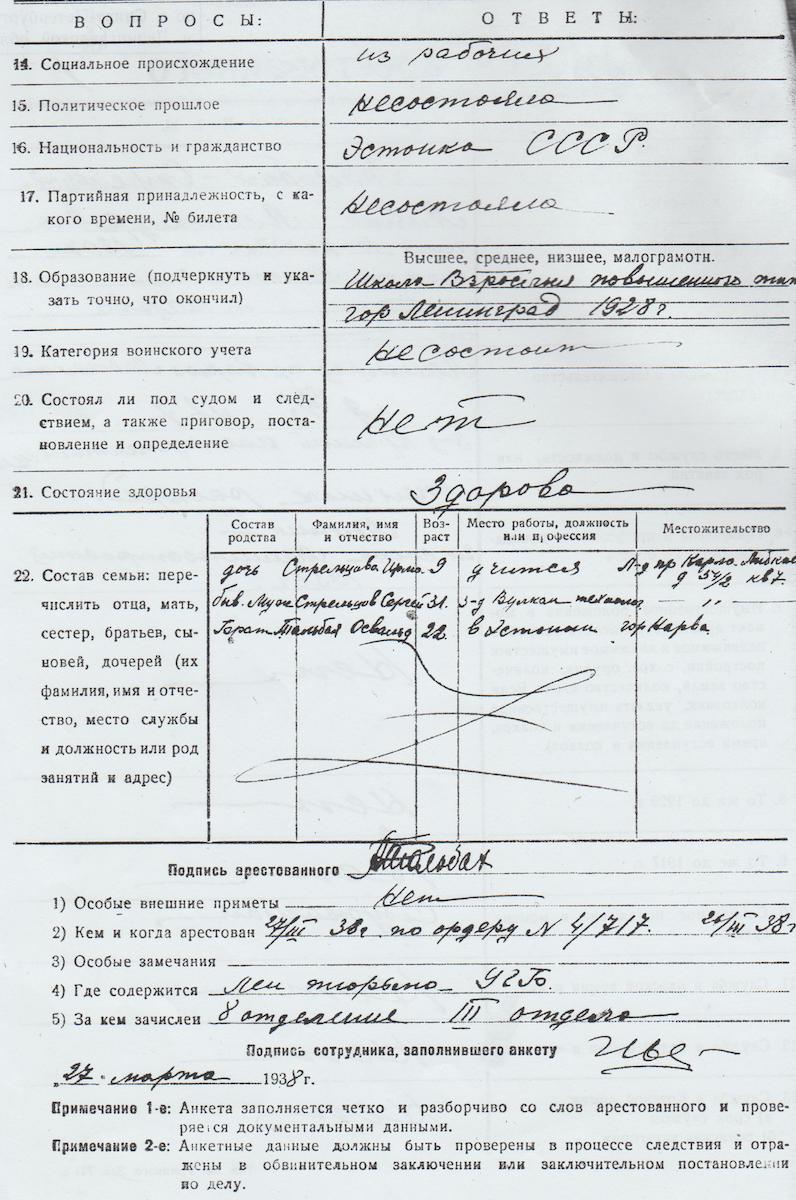 ВОПРОСЫ: ОТВЕТЫ:
14. Социальное происхождение из рабочих
15. Политическое прошлое несостояла
16. Национальность и гражданство Эстонка СССР.
17. Партийная принадлежность, с ка-
кого времени, № билета несостояла
Высшее, среднее, низшее, малограмотн.
18. Образование (подчеркнуть и ука- Школа Взрослых повышенного типа
зать точно, что окончил) гор Ленинград 1928 г.
19. Категория воинского учета несостоит
20. Состоял ли под судом и след-
ствием, а также приговор, поста- нет
новление и определение
21. Состояние здоровья Здорова
Состав родства Фамилия, имя и отчество Воз-раст Место работы, должность или профессия Местожительство
22. Состав семьи: пере-
числить отца, мать,
сестер, братьев, сы-
новей, дочерей (их
фамилия, имя и отче-
ство, место службы
и должность или род
занятий и адрес)
дочь Стрельцова Ирма 9 учится Л-д пр Карла Либкнехта д 57/2 кв 7.
быв. Муж Стрельцов Сергей 31. з-д Вулкан технолог "
Брат Тальбах Освальд 22. в Эстонии гор Нарва.
Подпись арестованного Тальбах
1) Особые внешние приметы нет
2) Кем и когда арестован 27/III 38г по ордеру N 4/717. 26/III 38г
3) Особые замечания
4) Где содержится Лен тюрьма УГБ.
5) За кем зачислен 8 отделение III отдела
Подпись сотрудника, заполнившего анкету
„27" марта 1938 г.
Примечание 1-е: Анкета заполняется четко и разборчиво со слов арестованного и прове-
ряется документальными данными.
Примечание 2-е: Анкетные данные должны быть проверены в процессе следствия и отра-
жены в обвинительном заключении или заключительном постановлении
по делу.